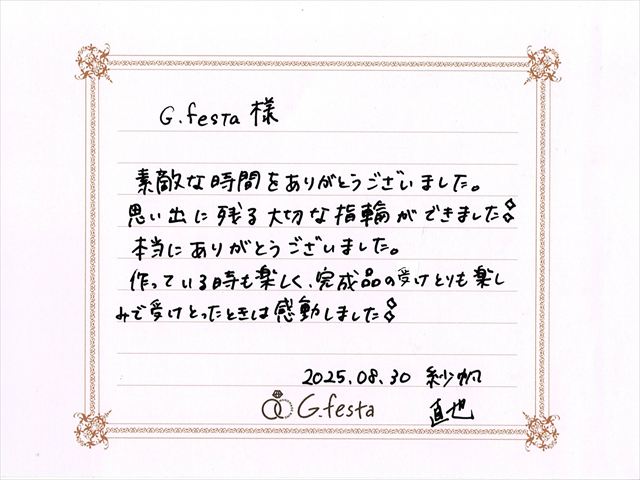 G.festa 様
素敵な時間をありがとうございました。
思い出に残る大切な指輪ができました
本当にありがとうございました。
作っている時も楽しく、完成品の受けとりも楽し
みで受けとったときは感動しました
2025.08.30 紗帆
G.festa 直也